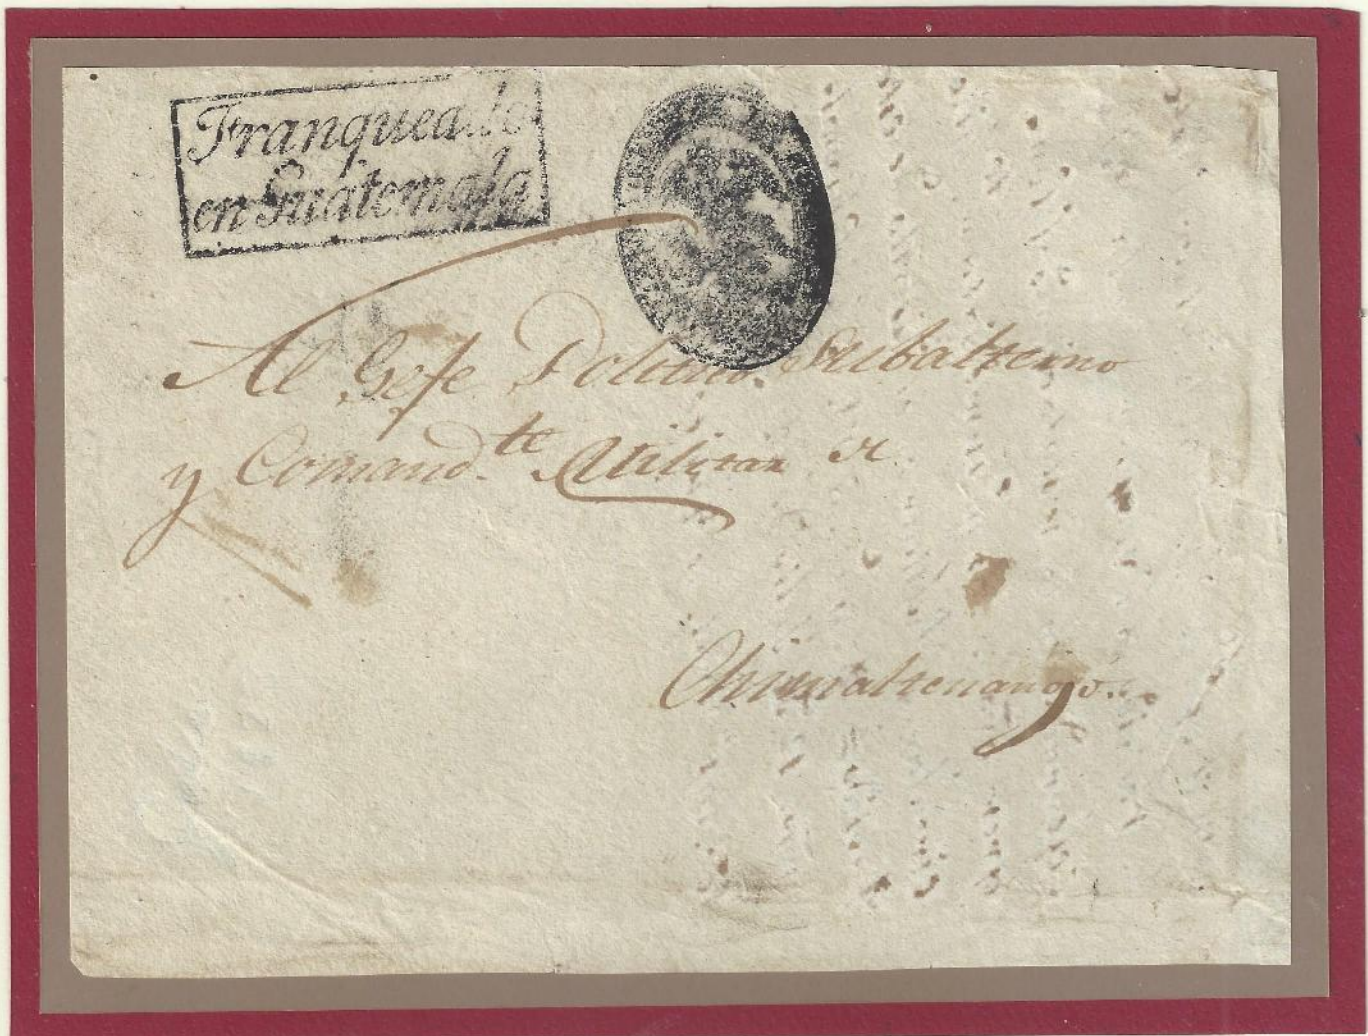 Franqueado
en Guatemala
Al Gefe Politico Subalterno
y Comand.te Militar de
Chimaltenango.